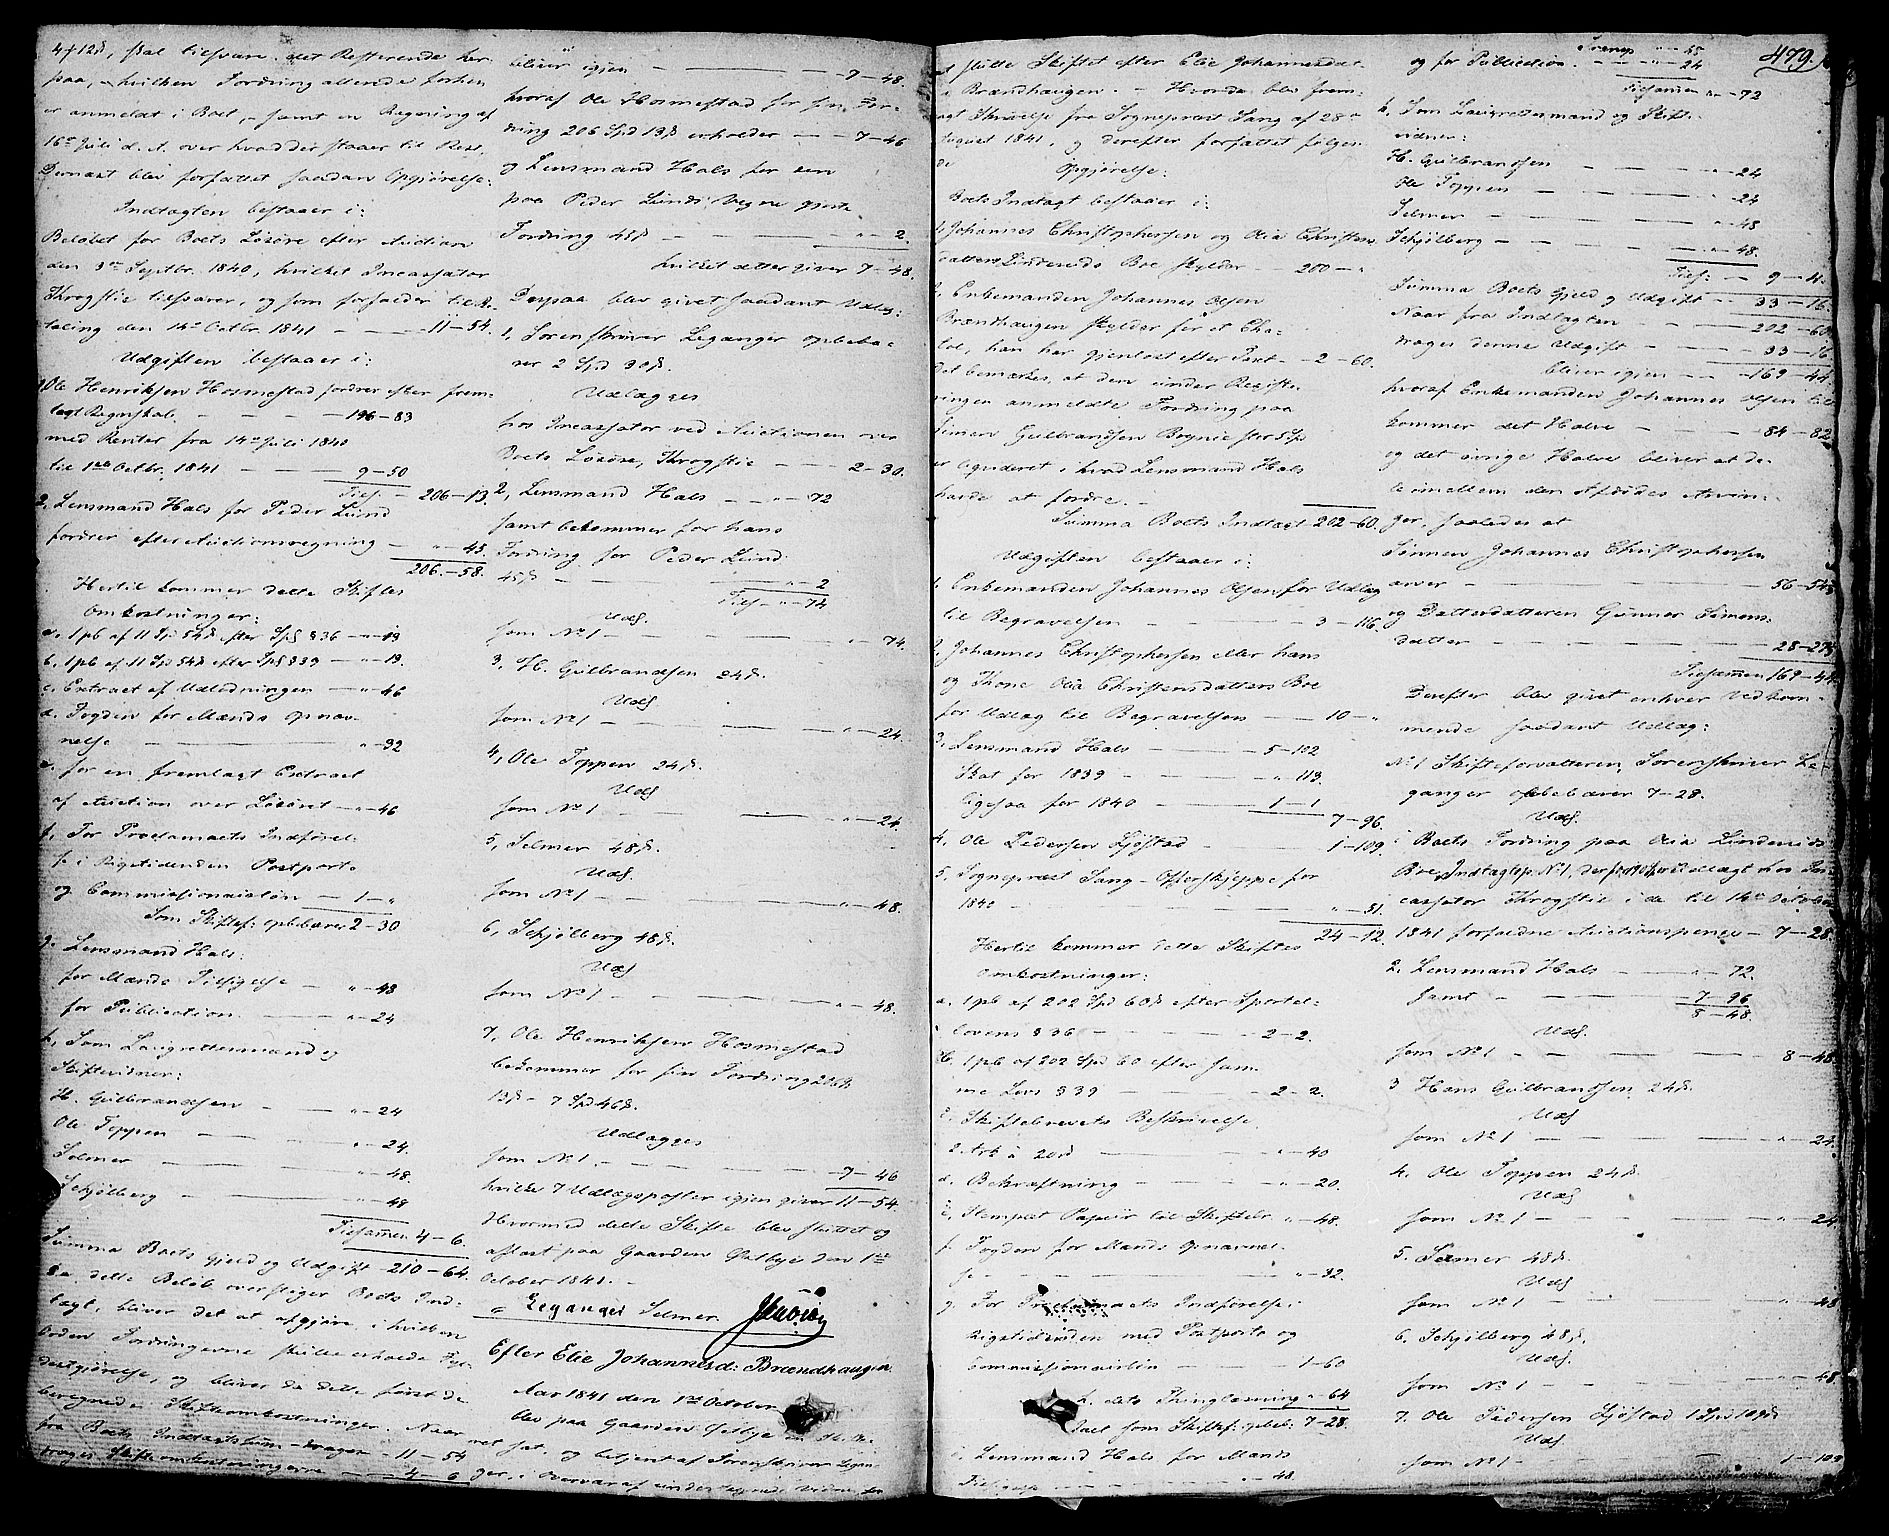 4 f 12 ß, skal tilsvare det Resterende her
paa, hvilken Fordring allerede forhen
er anmeldt i Boet, samt en Regning af
16de Juli d. A. over hvad der staaer til Rest,
Dernæst blev forfattet saadan Opgjørelse:
Indtægten bestaaer i:
Beløbet for Boets Løsøre efter Auction
den 3die Septbr. 1840, hvilket Incassator
Krogstie tilsvarer, og som forfalder til Be-
taling den 14de Octbr. 1841 — — 11–54.
Udgiften bestaaer i:
1, Ole Henriksen Hosmestad fordrer efter frem-
lagt Regnskab. — — 196–83
med Renter fra 14de Juli 1840
til 1ste Octbr. 1841 — — 9–50
Tils. — 206–13.
2, Lensmand Hals for Peder Lund
fordrer efter Auctionsregning — " – 45.
206.–58.
Hertil kommer dette Skiftes
Omkostninger:
a. 1 pb af 11 Spd 54 ß efter Spl § 36 — " – 13
b. 1 pb af 11 Spd 54 ß efter Spl § 39 — " – 13.
c. Extract af Udlodningen — " – 46
d. Fogden for Mænds Opnæv-
nelse — — " – 32
e. for en fremlagt Extract
af Auction over Løsøret — " – 46
f. For Proclamaets Indførel-
se i Rigstidenden Postporto
og Commissionairløn — 1 – "
Som Skiftef: opbebærer 2–30
g. Lensmand Hals:
for Mænds Tilsigelse — " – 48
for Publication — — " – 24
h, Som Laugrettesmænd og
Skiftevidner:
H. Gulbrandsen — — " – 24
Ole Toppen — — " – 24.
Selmer — — " – 48.
Schjølberg — — " – 48
Tilsamen 4–6.
Summa Boets Gjeld og Udgift – 210–64.
Da dette Beløb overstiger Boets Ind-
tægt, bliver det at afgjøre i hvilken
Orden Fordringerne skulle erholde Fyl-
destgjørelse, og bliver da dette først de
beregnede Skifteomkostninger. Naar
fra Boets Indtægtssum drages — 11–54
Skifteomkostningerne — — 4–6
bliver igjen — — 7–48.
hvoraf Ole Hosmestad for sin For-
dring 206 Spd 13 ß erholder — — 7–46
og Lensmand Hals for den
paa Peder Lunds Vegne gjorte
Fordring 45 ß — — " – 2.
hvilket atter giver 7–48.
Derpaa blev givet saadant Udlæg:
1, Sorenskriver Leganger opbebæ-
rer 2 Spd 30 ß.
Udlægges
hos Incassator ved Auctionen over
Boets Løsøre, Krogstie — — 2–30.
2, Lensmand Hals — — " – 72
samt bekommer for hans
Fordring for Peder Lund
45 ß — — " – 2
Tils — " – 74
Udl.
som No 1 — — " – 74.
3, H. Gulbrandsen 24 ß.
Udl
som No 1 — — " – 24.
4, Ole Toppen 24 ß.
Udl
som No 1 — — " – 24.
5, Selmer 48 ß.
Udl.
som No 1 — — " – 48.
6, Schjølberg 48 ß.
Udl
som No 1 — — " – 48.
7, Ole Henriksen Hosmestad
bekommer for sin Fordring 206 Spd
13 ß – 7 Spd 46 ß.
Udlægges
som No 1. — — 7–46
hvilke 7 Udlægsposter igjen giver 11–54.
Hvormed dette Skifte blev sluttet og
aflæst paa Gaarden Østbye den 1ste
October 1841. –
Leganger Selmer
Efter Elie Johannesd: Brændhaugen
Aar 1841 den 1ste October
blev paa Gaarden Østbye en Skifte-
ret sat, og betjent af Sorenskriver Legan-
ger, i Overvær af undertegnede Vidner, for
479.
at slutte Skiftet efter Elie Johannesdat.
Brændhaugen. – Hvorda blev frem-
lagt Skrivelse fra Sognepræst Sang af 28de
August 1841, og derefter forfattet følgen-
de Opgjørelse:
Boets Indtægt bestaaer i:
1, Johannes Christophersen og Olia Christens-
datters Lindereids Boe skylder — 200 – "
2, Enkemanden Johannes Olsen
Brændhaugen skylder for et Cha-
tol, han har gjenløst efter Taxt – 2–60.
Det bemærkes, at den under Registe-
ringen anmeldte Fordring paa
Simen Gulbrandsen Bognie for 5 Spd
er liqvideret i hvad Lensmand Hals
havde at fordre. –
Summa Boets Indtægt 202–60.
Udgiften bestaaer i:
1. Enkemanden Johannes Olsen for Udlæg
til Begravelsen — — 3 – 116.
2. Johannes Christophersen eller hans
og Kone Olia Christensdatters Boe
for Udlæg til Begravelsen — 10 – "
3, Lensmand Hals — — 5–102
Skat for 1839 — — " 113.
ligesaa for 1840 — — 1–1
7–96.
4. Ole Pedersen Ljøstad — — 1–109.
5. Sognepræst Sang – Offerskjeppe for
1840 — — " – 31.
24–12.
Hertil kommer dette Skiftes
Omkostninger:
a. 1 pb af 202 Spd 60 ß efter Sportel-
lovens § 36 — — 2–2.
b. 1 pb af 202 Spd 60 efter sam-
me Lovs § 39 — — 2–2.
c. Skiftebrevets Beskrivelse
2 Ark à 20 ß — — " – 40
d. Bekræftning — — " – 20.
e. Stemplet Papiir til Skiftebr " – 48.
f. Fogden for Mænds Opnævnel-
se — — " – 32.
g. For Proclamaets Indførelse i
Rigstidenden med Postporto og
Commissionairløn — 1–60
h. dets Thinglæsning " – 64
Ialt som Skiftef: opbeb. 7–28.
Lensmand Hals for Mænds
Tilsigelse — — " – 48.
Transp " – 48
og for Publication. — " – 24
Tilsamen " – 72
k, Som Laugrettesmænd og Skifte-
vidner:
H. Gulbrandsen — — " – 24
Ole Toppen — — " – 24
Selmer — — " – 48
Schjølberg — — " – 48.
Tils: — 9–4.
Summa Boets Gjeld og Udgift — 33–16.
Naar fra Indtægten — — 202–60
drages denne Udgift — — 33–16
bliver igjen — 169–44
hvoraf Enkemanden Johannes Olsen til-
kommer det Halve — — 84–82
og det øvrige Halve bliver at de-
le imellem den Afdødes Arvin-
ger, saaledes at
Sønnen Johannes Christophersen
arver — — 56–54⅔
og Datterdatteren Gunnor Simens-
datter — — 28–27⅓
Tilsamen 169–44.
Derefter blev givet enhver Vedkom-
mende saadant Udlæg:
No 1 Skifteforvalteren, Sorenskriver Le-
ganger opbebærer 7–28.
Udl.
i Boets Fordring paa Olia Lindereids
Boe, Indtægtsp. No 1, der er udlagt hos In-
cassator Krogstie i de til 14de October
1841 forfaldne Auctionspenge — 7–28.
2. Lensmand Hals — — " – 72.
samt — — 7–96
8–48.
Udl.
som No 1 — — 8–48.
3 Hans Gulbrandsen 24 ß.
Udl
som No 1 — — " – 24.
4. Ole Toppen 24 ß
Udl
som No 1 — — " – 24.
5. Selmer 48 ß.
Udl
som No 1 — — " – 48
6. Schjølberg 48 ß.
Udl.
som No 1 — — " – 48
7. Ole Pedersen Ljøstad 1 Spd 109 ß
Udl
som No 1 – — — 1–109